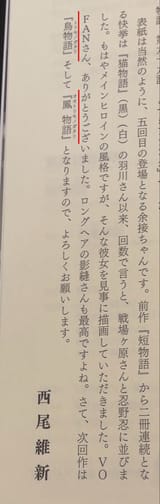 表紙は当然のように、五回目の登場となる余接ちゃんです。前作『短物語』から二冊連続とな
る快挙は『猫物語』(黒)(白)の羽川さん以来、回数で言うと、戦場ヶ原さんと忍野忍に並びま
した。もはやメインヒロインの風格ですが、そんな彼女を見事に描画していただきました。VO
FANさん、ありがとうございました。ロングヘアの影縫さんも最高ですよね。さて、次回作は
『鳥物語』そして『鳳物語』となりますので、よろしくお願いします。
西尾維新